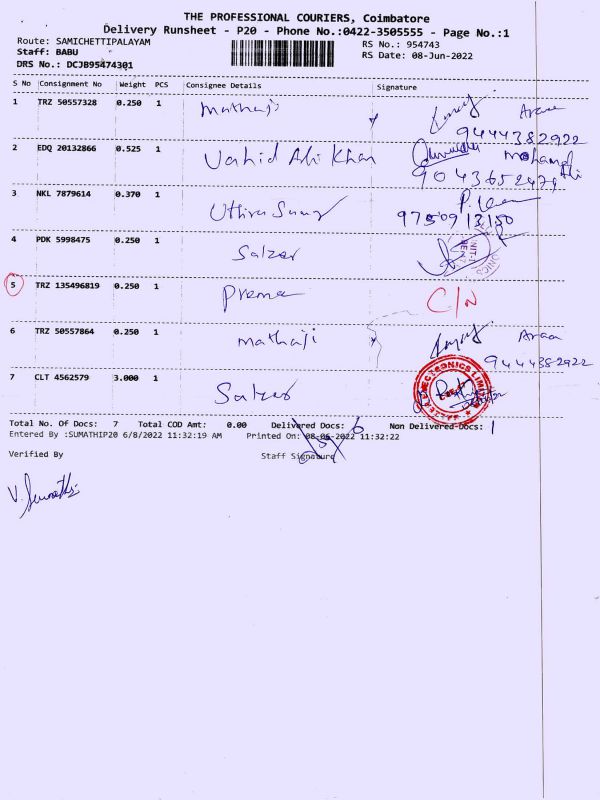 THE PROFESSIONAL COURIERS, Coimbatore
Delivery Runsheet - P20 - Phone No.:0422-3505555 - Page No.:1
Route: SAMICHETTIPALAYAM
RS No.: 954743
Staff: BABU
RS Date: 08-Jun-2022
DRS No.: DCJB95474301
S No Consignment No Weight PCS Consignee Details Signature
1 TRZ 50557328 0.250 1 Mathaji
9444382922
2 EDQ 20132866 0.525 1 Vahid Ali Khan Mohamed Ali
3 NKL 7879614 0.370 1
4 PDK 5998475 0.250 1 Salzer
5 TRZ 135496819 0.250 1 Prema C/N
6 TRZ 50557864 0.250 1 mathaji
9444382922
7 CLT 4562579 3.000 1 Salzer
Total No. Of Docs: 7 Total COD Amt: 0.00 Delivered Docs: 6 Non Delivered Docs: 1
Entered By :SUMATHIP20 6/8/2022 11:32:19 AM Printed On: 08-06-2022 11:32:22
Verified By Staff Signature